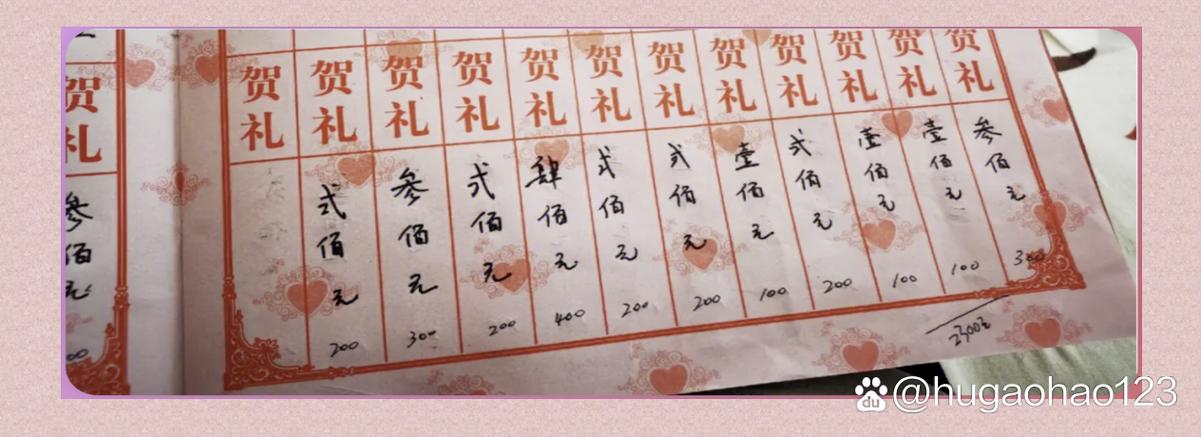 贺礼 参佰元 300
贺礼 壹佰元 100
贺礼 壹佰元 100
贺礼 弍佰元 200
贺礼 壹佰元 100
贺礼 弍佰元 200
贺礼 弍佰元 200
贺礼 肆佰元 400
贺礼 弍佰元 200
贺礼 参佰元 300
贺礼 弍佰元 200
贺礼
2300元
贺礼 参佰元
@hugaohao123